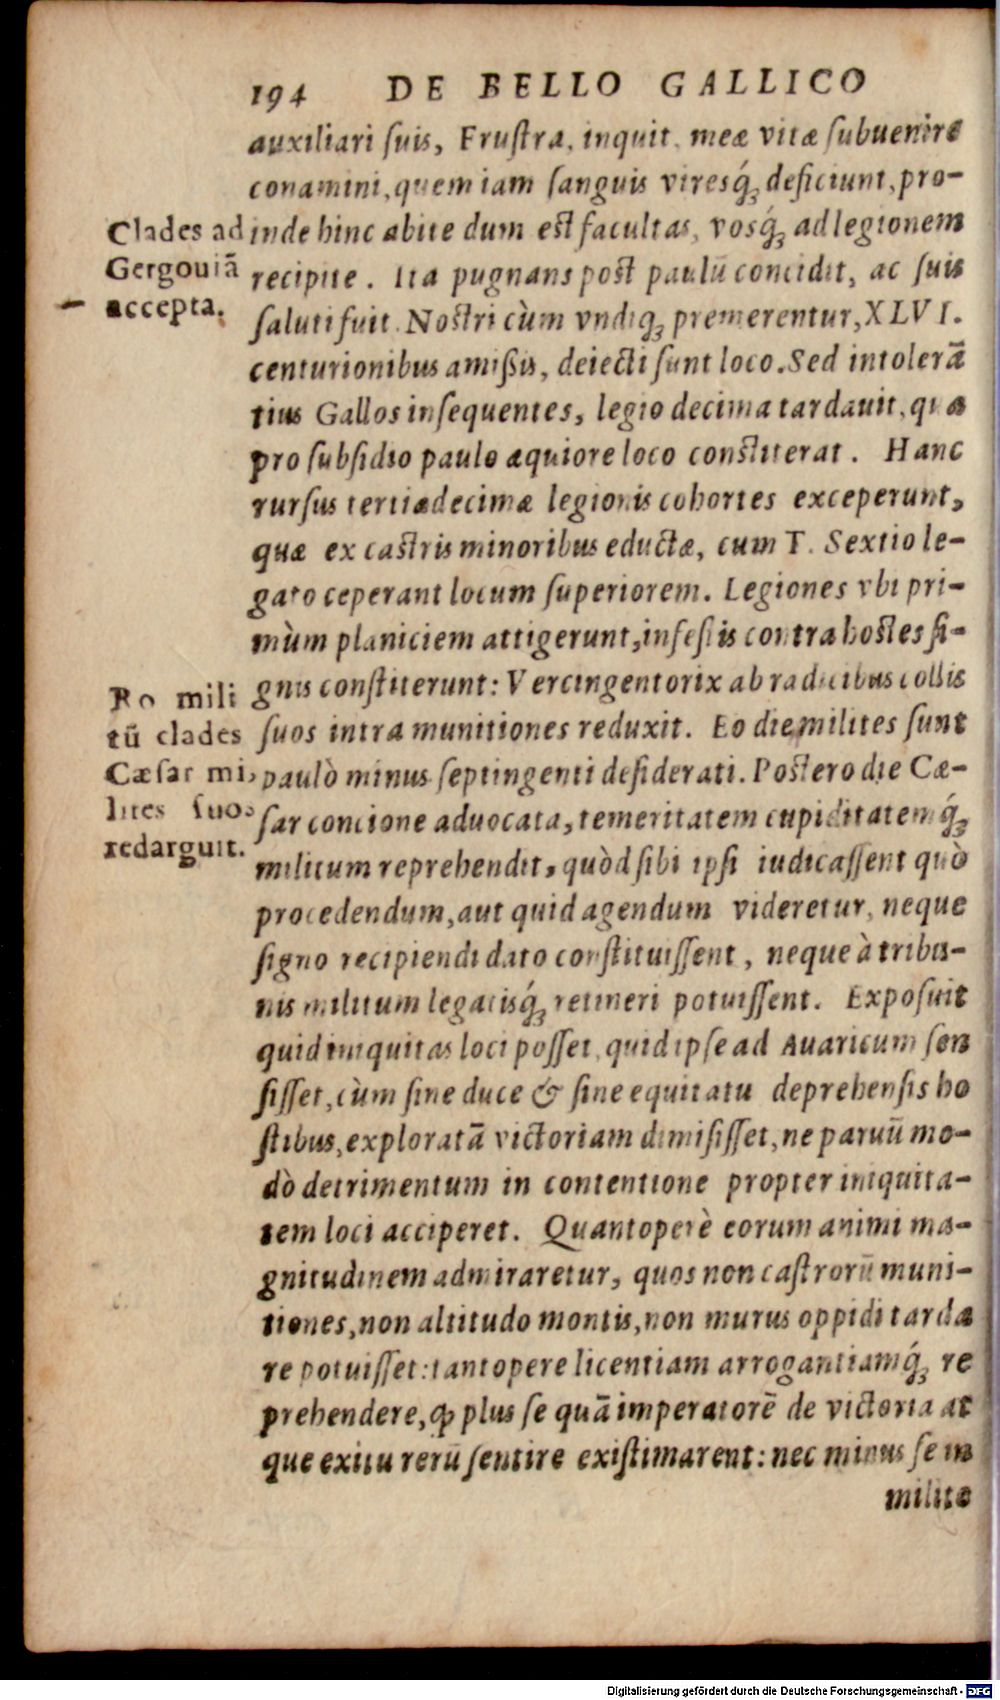 194 DE BELLO GALLICO
auxiliari ſuis, Fruſtra, inquit, meæ vitæ ſubuenire
conamini, quem iam ſanguis viresq́; deficiunt, pro-
Clades ad
inde hinc abite dum eſt facultas, vosq́; ad legionem
Gergouiā
recipite. Ita pugnans poſt paulū concidit, ac ſuis
accepta.
ſaluti fuit. Noſtri cùm vndiq; premerentur, XLVI.
centurionibus amiſsis, deiecti ſunt loco. Sed intolerā
tius Gallos inſequentes, legio decima tardauit, quæ
pro ſubſidio paulo æquiore loco conſtiterat. Hanc
rurſus tertiædecimæ legionis cohortes exceperunt,
quæ ex caſtris minoribus eductæ, cum T. Sextio le-
gato ceperant locum ſuperiorem. Legiones vbi pri-
mùm planiciem attigerunt, infeſtis contra hoſtes ſi-
gnis conſtiterunt: Vercingentorix ab radicibus collis
Ro mili
tū clades
ſuos intra munitiones reduxit. Eo die milites ſunt
Cæſar mi,
paulò minus ſeptingenti deſiderati. Poſtero die Cæ-
lites ſuos
ſar concione aduocata, temeritatem cupiditatemq́;
redarguit.
militum reprehendit, quòd ſibi ipſi iudicaſſent quò
procedendum, aut quid agendum videretur, neque
ſigno recipiendi dato conſtituiſſent, neque à tribu-
nis militum legatisq́; retineri potuiſſent. Expoſuit
quid iniquitas loci poſſet, quid ipſe ad Auaricum ſen
ſiſſet, cùm ſine duce & ſine equitatu deprehenſis ho
ſtibus, exploratā victoriam dimiſiſſet, ne paruū mo-
dò detrimentum in contentione propter iniquita-
tem loci acciperet. Quantoperè eorum animi ma-
gnitudinem admiraretur, quos non caſtrorū muni-
tiones, non altitudo montis, non murus oppidi tarda
re potuiſſet: tantopere licentiam arrogantiamq́; re
prehendere, ꝙ plus ſe quā imperatorē de victoria at
que exitu rerū ſentire exiſtimarent: nec minus ſe in
milite
Digitalisierung gefördert durch die Deutsche Forschungsgemeinschaft - DFG